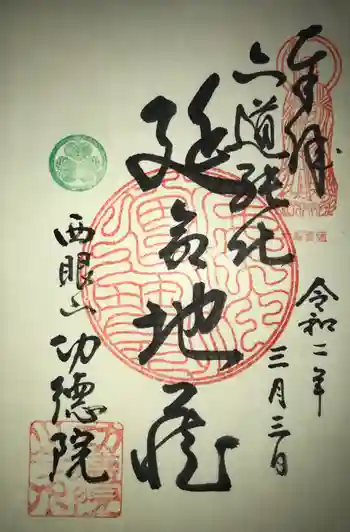 奉拝
六道能化
延命地蔵
令和二年
三月三日
西眼山功徳院